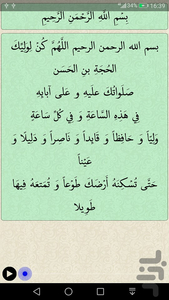 16:39
بِسْمِ اللَّهِ الرَّحْمَنِ الرَّحِيمِ
بسم الله الرحمن الرحیم اللَّهُمَّ كُنْ لِوَلِيِّكَ
الحُجَةِ بنِ الحَسَن
صَلَواتُكَ علَيهِ و عَلى آبائِهِ
فِي هَذِهِ السَّاعَةِ وَ فِي كُلِّ سَاعَةٍ
وَلِيّاً وَ حَافِظاً وَ قَائِداً وَ نَاصِراً وَ دَلِيلًا وَ
عَيْناً
حَتَّى تُسْكِنَهُ أَرْضَكَ طَوْعاً وَ تُمَتعَهُ فِيهَا
طَوِيلا
بازار